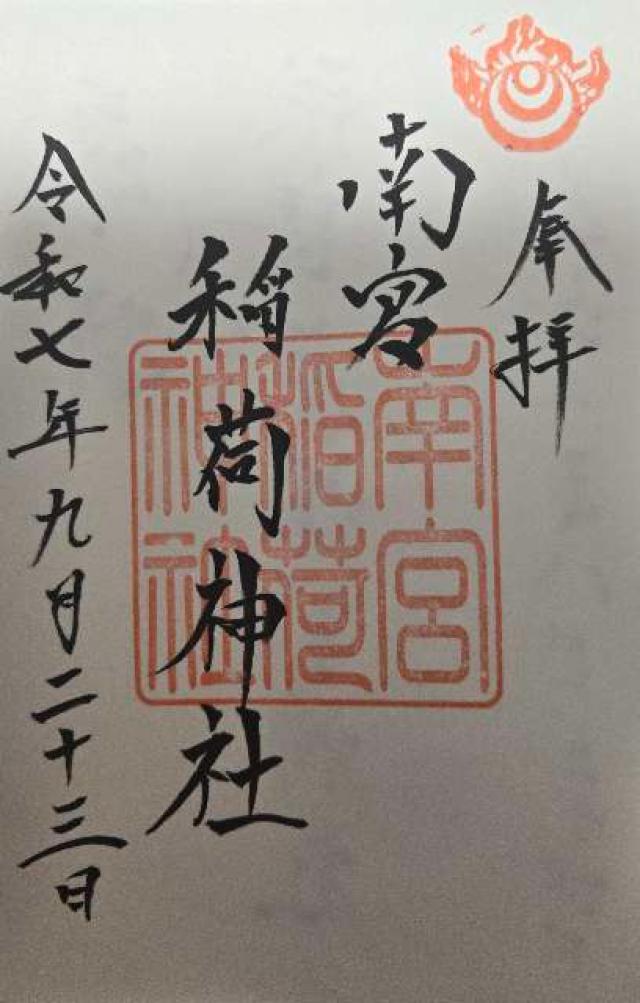 奉拝
南宮
稲荷神社
令和七年九月二十三日
南宮
稲荷
神社